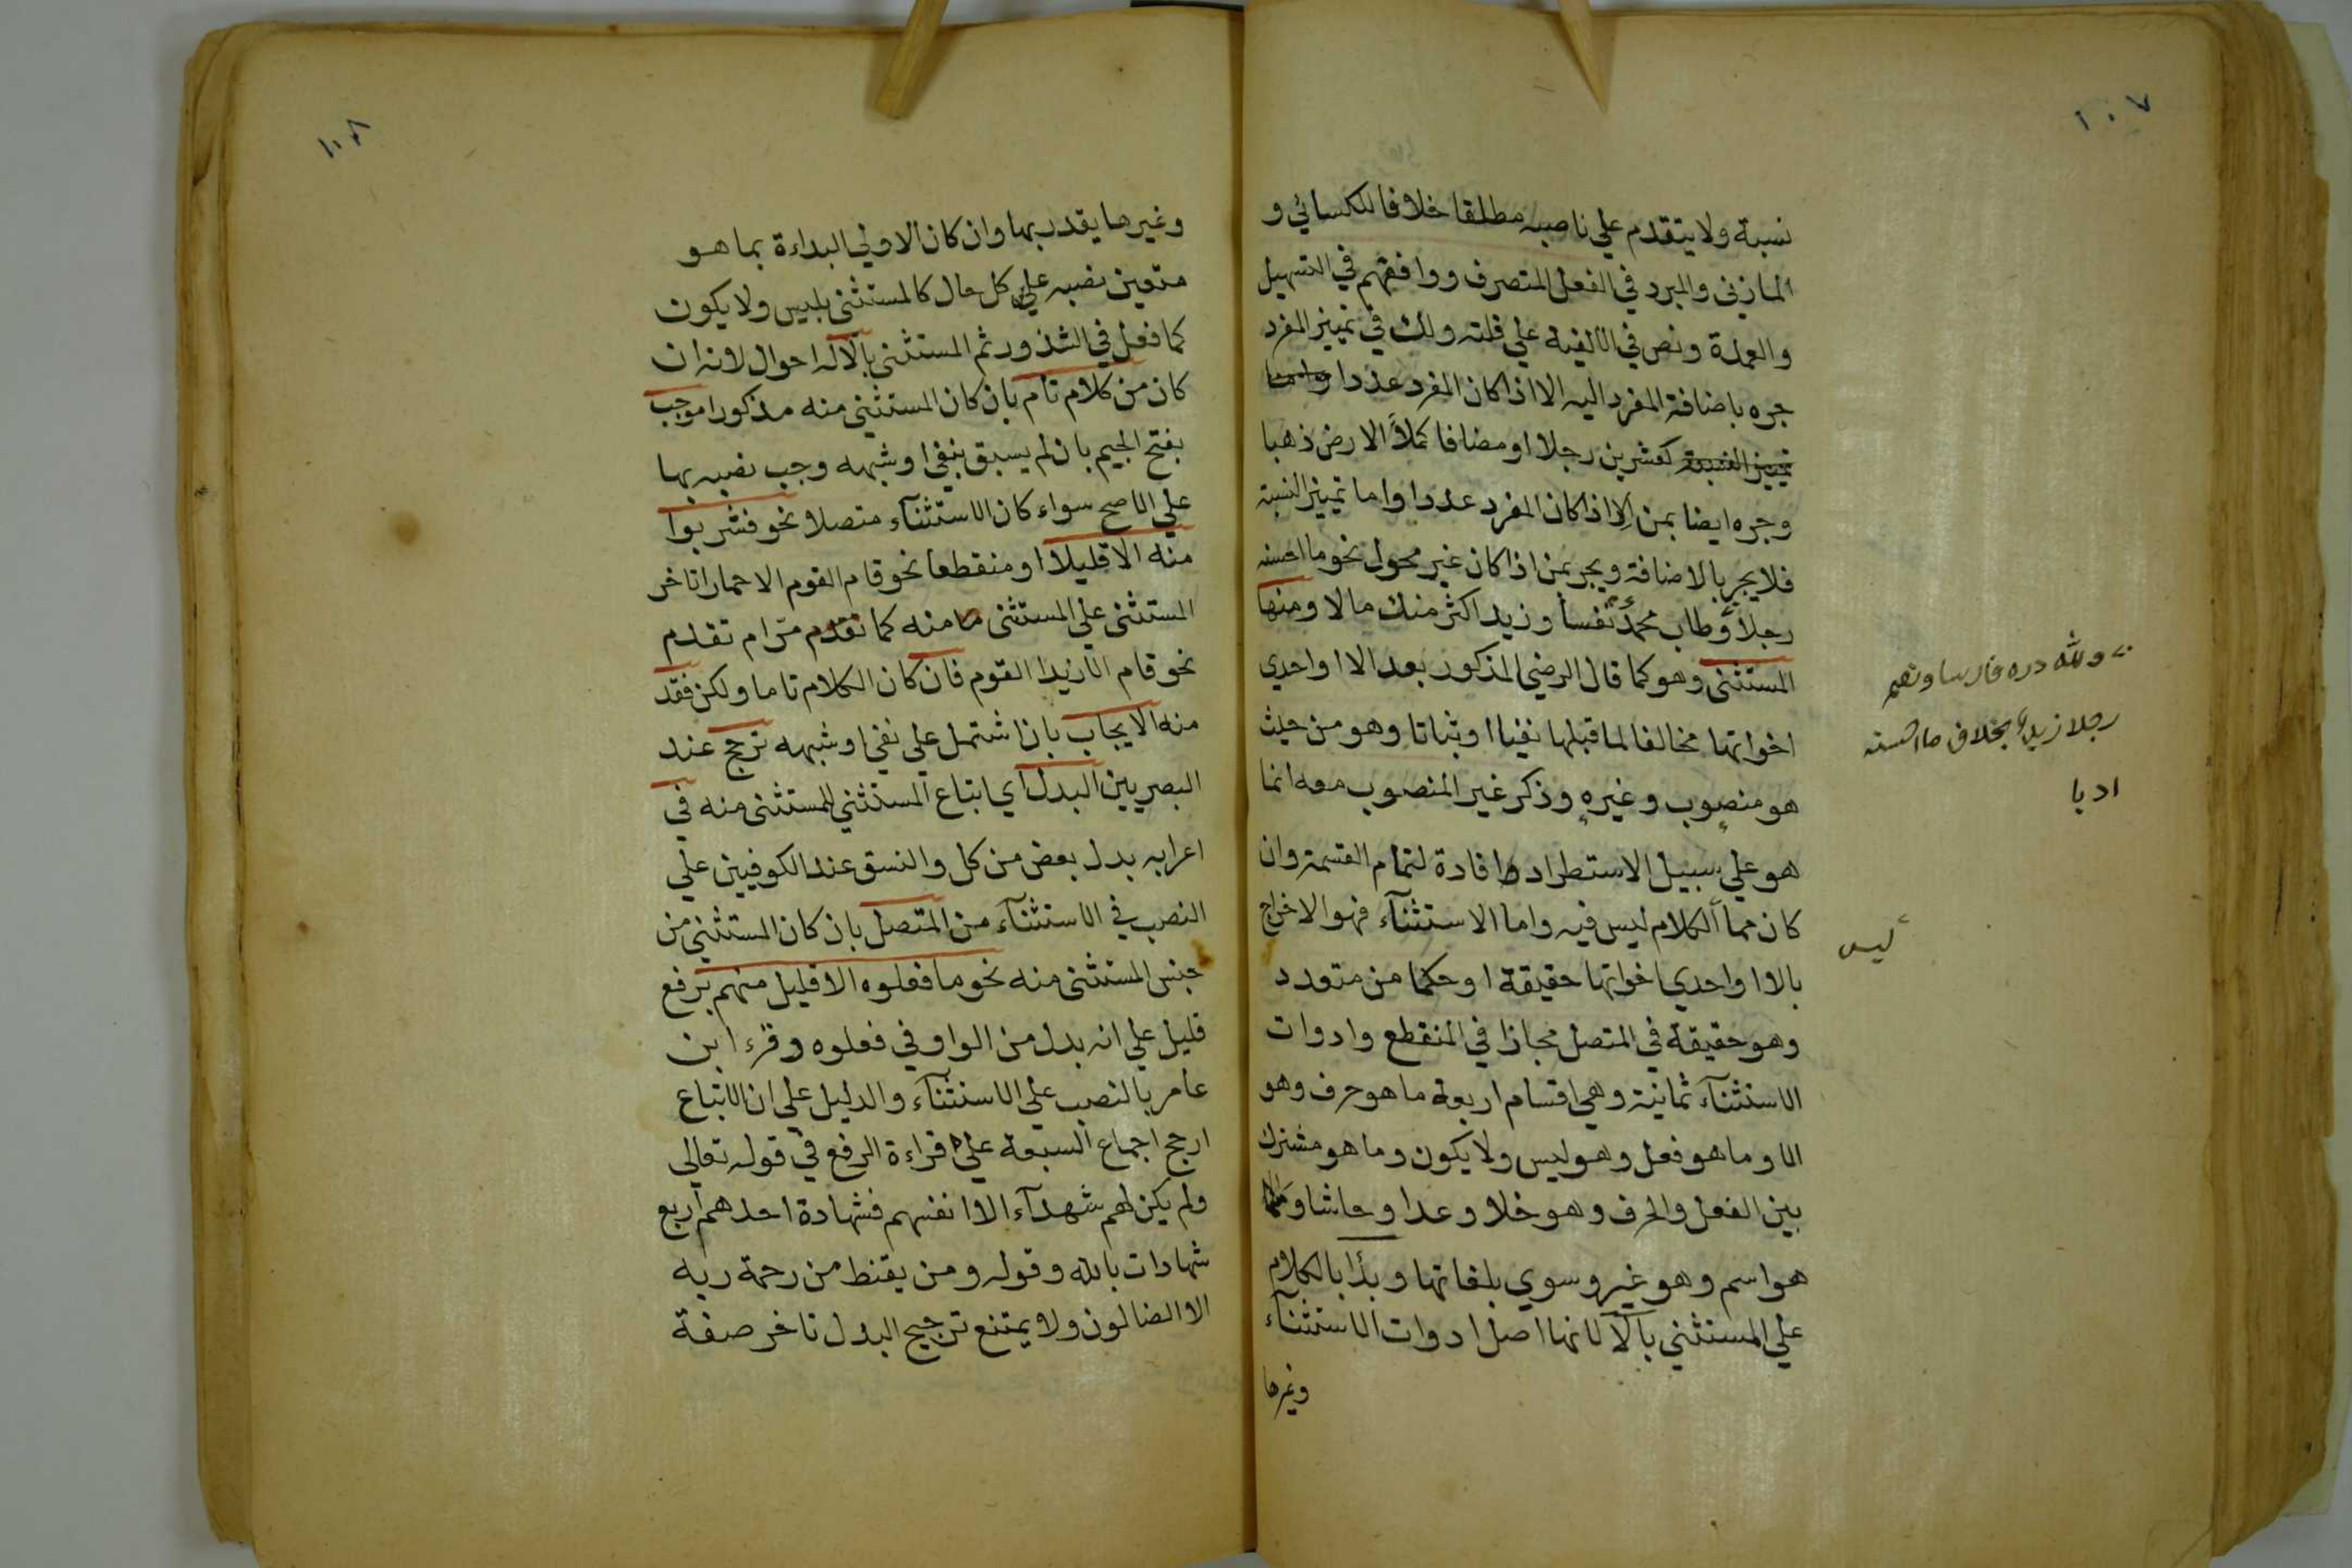 ١٠٧
نسبة ولا يتقدم علي ناصبه مطلقا خلافا للكسائي و
المازني والمبرد في الفعل المتصرف ووافقهم في التسهيل
والعمدة ونص في الالفية علي قلته ولك في تمييز المفرد
جره باضافة المفرد اليه الا اذا كان المفرد عددا واما
تمييز النسبة كعشرين رجلا او مضافا كملأ الارض ذهبا
وجره ايضا بمن الا اذا كان المفرد عددا واما تمييز النسبة
فلا يجر بالاضافة ويجر بمن اذا كان غير محول نحو ما احسنه
رجلا وطاب محمد نفسا وزيد اكثر منك مالا ومنها
المستثني وهو كما قال الرضي المذكور بعد الا او احدي
اخواتها مخالفا لما قبلها نفيا او ثباتا وهو من حيث
هو منصوب وغيره وذكر غير المنصوب معه انما
هو علي سبيل الاستطراد وافادة لتمام القسمة وان
كان مما الكلام ليس فيه واما الاستثنآء فهو الاخراج
بالا او احدي اخواتها حقيقة او حكما من متعدد
وهو حقيقة في المتصل مجازا في المنقطع وادوات
الاستثنآء ثمانية وهي اقسام اربعة ما هو حرف وهو
الا وما هو فعل وهو ليس ولا يكون وما هو مشترك
بين الفعل والحرف وهو خلا وعدا وحاشا وما
هو اسم وهو غير وسوي بلغاتها وبدأ بالكلام
علي المستثني بالا لانها اصل ادوات الاستثنآء
وغيرها
ولله دره فارسا ونعم
رجلا زيد بخلاف ما احسنه
ادبا
ليس
١٠٨
وغيرها يقدر بها وان كان الاولي البداءة بما هو
متعين نصبه علي كل حال كالمستثني بليس ولا يكون
كما فعل في الشذور ثم المستثني بالا له احوال لانه ان
كان من كلام تام بان كان المستثني منه مذكورا موجب
بفتح الجيم بان لم يسبق بنفي او شبهه وجب نصبه بها
علي الاصح سواء كان الاستثنآء متصلا نحو فشربوا
منه الا قليلا او منقطعا نحو قام القوم الا حمارا تاخر
المستثني علي المستثني منه كما تقدم مرّ ام تقدم
نحو قام الا زيدا القوم فان كان الكلام تاما ولكن فقد
منه الايجاب بان اشتمل علي نفي او شبهه ترجح عند
البصريين البدل اي اتباع المستثني للمستثني منه في
اعرابه بدل بعض من كل والنسق عند الكوفيين علي
النصب في الاستثنآء من المتصل بان كان المستثني من
جنس المستثني منه نحو ما فعلوه الا قليل منهم برفع
قليل علي انه بدل من الواو في فعلوه وقرء ابن
عامر بالنصب علي الاستثنآء والدليل علي ان الاتباع
ارجح اجماع السبعة علي قراءة الرفع في قوله تعالي
ولم يكن لهم شهدآء الا انفسهم فشهادة احدهم اربع
شهادات بالله وقوله ومن يقنط من رحمة ربه
الا الضالون ولا يمتنع ترجيح البدل تاخر صفة